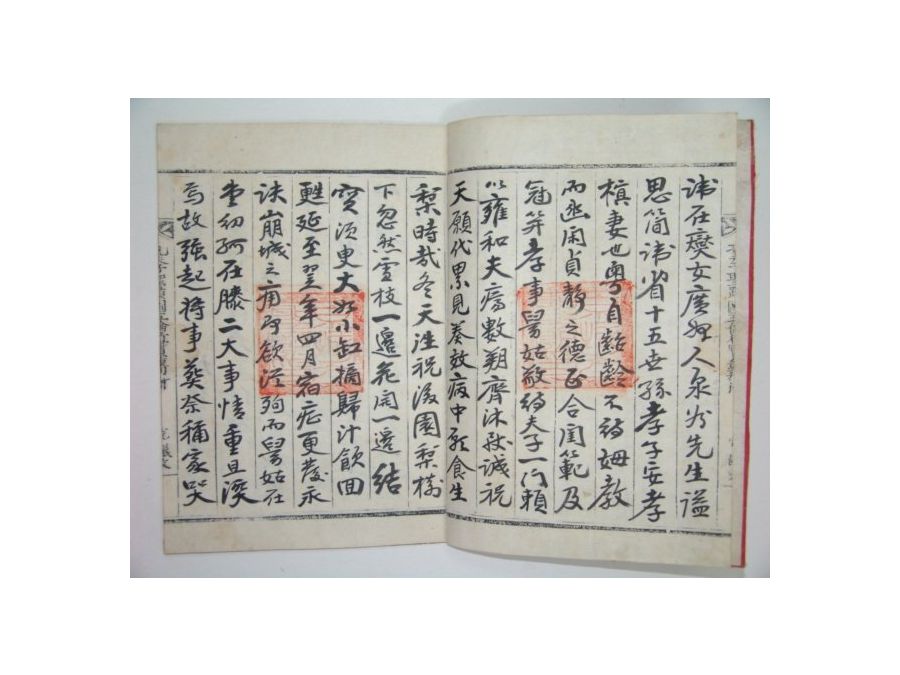 諱在爕女廣州人泉谷先生諡
思簡諱省十五世孫孝子安孝
槙妻也粤自齠齡不待姆教
而幽閑貞靜之德正合閨範及
冠笄孝事舅姑敬待夫子一門賴
以雍和夫癘數朔齊沐獻誠祝
天願代累見奏效病中願食生
梨時哉冬天注祝後園梨樹
下忽然雪枝一邊花開一邊結
實須臾大如小缸摘歸汁飮回
甦延至翌年四月宿症更發永
訣崩城之痛即欲從殉而舅姑在
堂幼孤在膝二大事情重且深
焉故强起將事葬奈稱家哭